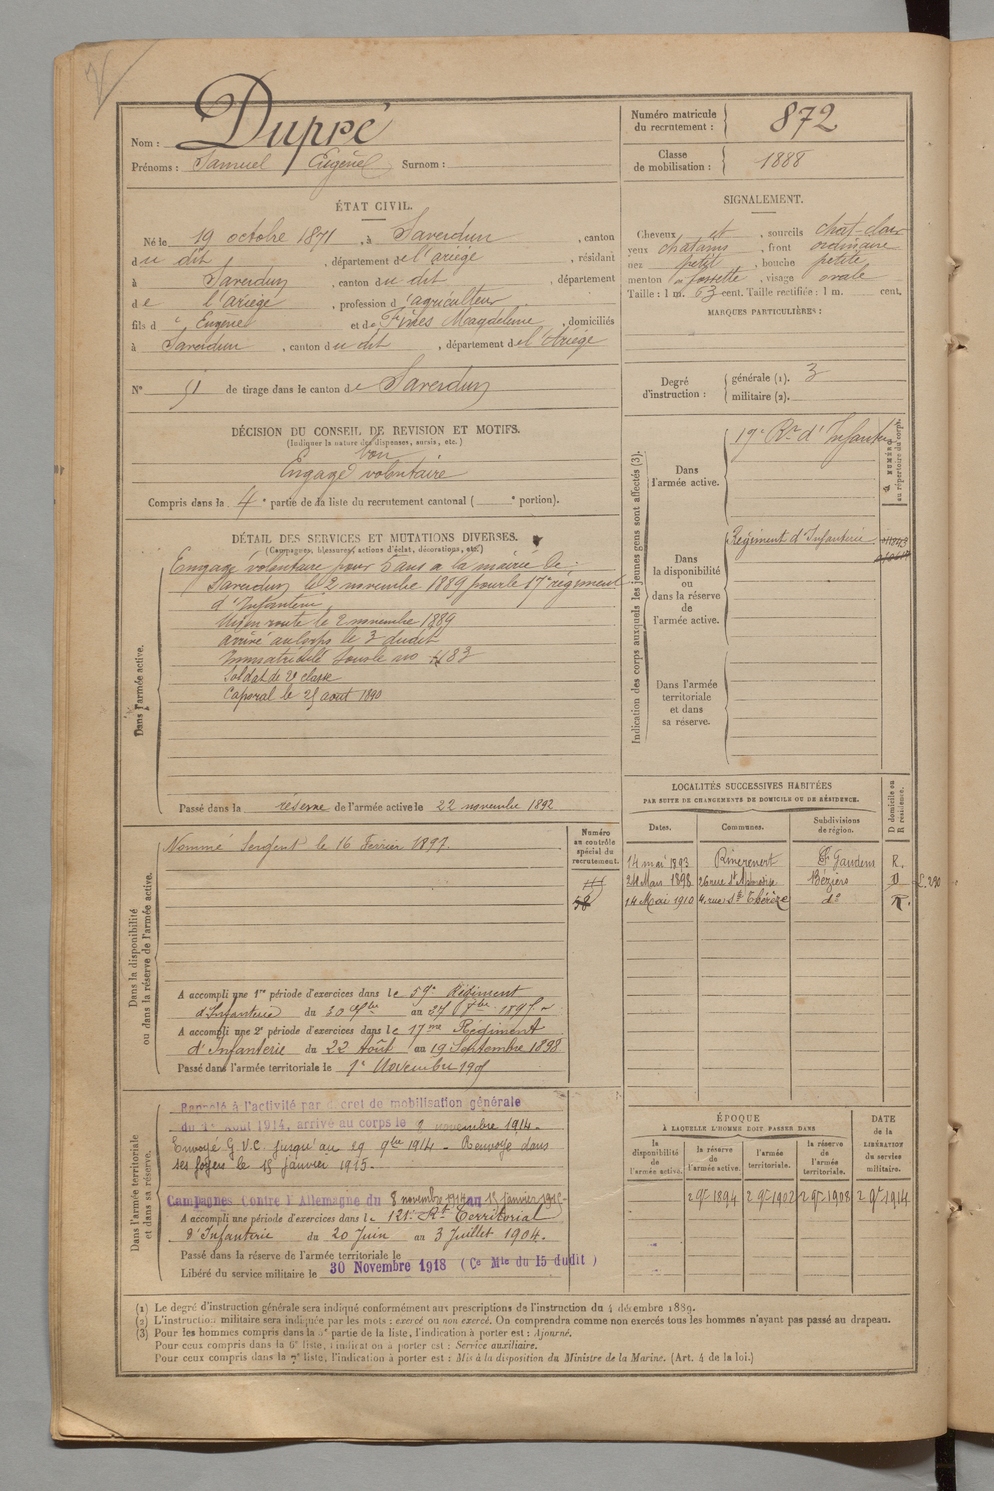 Nom : Dupré
Prénoms : Samuel Eugène Surnom :
Numéro matricule du recrutement : 872
Classe de mobilisation : 1888
ÉTAT CIVIL.
Né le 19 octobre 1871, à Saverdun, canton
du dit, département de l'ariège, résidant
à Saverdun, canton du dit, département
de l'ariège, profession d'agriculteur
fils d'Eugène et de Magdeleine, domiciliés
à Saverdun, canton du dit, département de l'Ariège
N° 51 de tirage dans le canton de Saverdun
DÉCISION DU CONSEIL DE REVISION ET MOTIFS.
(Indiquer la nature des dispenses, sursis, etc.)
bon
Engagé volontaire
Compris dans la 4e partie de la liste du recrutement cantonal ( e portion).
SIGNALEMENT.
Cheveux et, sourcils chat-clair
yeux chatains, front ordinaire
nez petit, bouche petite
menton à fossette, visage ovale
Taille : 1 m. 63 cent. Taille rectifiée : 1 m. cent.
MARQUES PARTICULIÈRES :
Degré d'instruction : générale (1). 3
militaire (2).
DÉTAIL DES SERVICES ET MUTATIONS DIVERSES.
(Campagnes, blessures, actions d'éclat, décorations, etc.)
Dans l'armée active.
Engagé volontaire pour 5 ans a la mairie de
Saverdun le 2 novembre 1889 pour le 17e régiment
d'Infanterie.
Mis en route le 2 novembre 1889
arrivé au corps le 3 dudit
Immatriculé sous le no 483
Soldat de 2e classe
Caporal le 25 aout 1890
Passé dans la réserve de l'armée active le 22 novembre 1892
Indication des corps auxquels les jeunes gens sont affectés (3).
NUMÉRO au répertoire du corps.
Dans l'armée active.
17e Rt d'Infanterie
Dans la disponibilité ou dans la réserve de l'armée active.
Régiment d'Infanterie
Dans l'armée territoriale et dans sa réserve.
Dans la disponibilité ou dans la réserve de l'armée active.
Nommé Sergent le 16 Février 1897.
Numéro au contrôle spécial du recrutement.
58
A accompli une 1re période d'exercices dans le 59e Régiment
d'Infanterie du 30 au 27 1895
A accompli une 2e période d'exercices dans le 17me Régiment
d'Infanterie du 22 Août au 19 Septembre 1898
Passé dans l'armée territoriale le 1e Novembre 190
LOCALITÉS SUCCESSIVES HABITÉES
PAR SUITE DE CHANGEMENTS DE DOMICILE OU DE RÉSIDENCE.
Dates. Communes. Subdivisions de région. D domicile ou R résidence.
14 mai 1893 St Gaudens R.
24 Mars 1898 26 rue Béziers D
14 Mai 1910 4. rue Ste Thérèze do R.
Dans l'armée territoriale et dans sa réserve.
Rappelé à l'activité par décret de mobilisation générale
du 1er Août 1914, arrivé au corps le 2 novembre 1914.
Envoyé G.V.C. jusqu'au 29 9bre 1914 - Renvoyé dans
ses foyers le 15 janvier 1915.
Campagnes Contre l'Allemagne du 8 novembre 1914 au 15 janvier 1915
A accompli une période d'exercices dans le 121e Rt Territorial
d'Infanterie du 20 Juin au 3 Juillet 1904.
Passé dans la réserve de l'armée territoriale le
Libéré du service militaire le 30 Novembre 1918 (Ce Mle du 15 dudit)
ÉPOQUE
À LAQUELLE L'HOMME DOIT PASSER DANS
DATE de la LIBÉRATION du service militaire.
la disponibilité de l'armée active. la réserve de l'armée active. l'armée territoriale. la réserve de l'armée territoriale.
2 9bre 1894 2 9bre 1902 2 9bre 1908 2 9bre 1914
(1) Le degré d'instruction générale sera indiqué conformément aux prescriptions de l'instruction du 4 décembre 1889.
(2) L'instruction militaire sera indiquée par les mots : exercé ou non exercé. On comprendra comme non exercés tous les hommes n'ayant pas passé au drapeau.
(3) Pour les hommes compris dans la 5e partie de la liste, l'indication à porter est : Ajourné.
Pour ceux compris dans la 6e liste, l'indication à porter est : Service auxiliaire.
Pour ceux compris dans la 7e liste, l'indication à porter est : Mis à la disposition du Ministre de la Marine. (Art. 4 de la loi.)